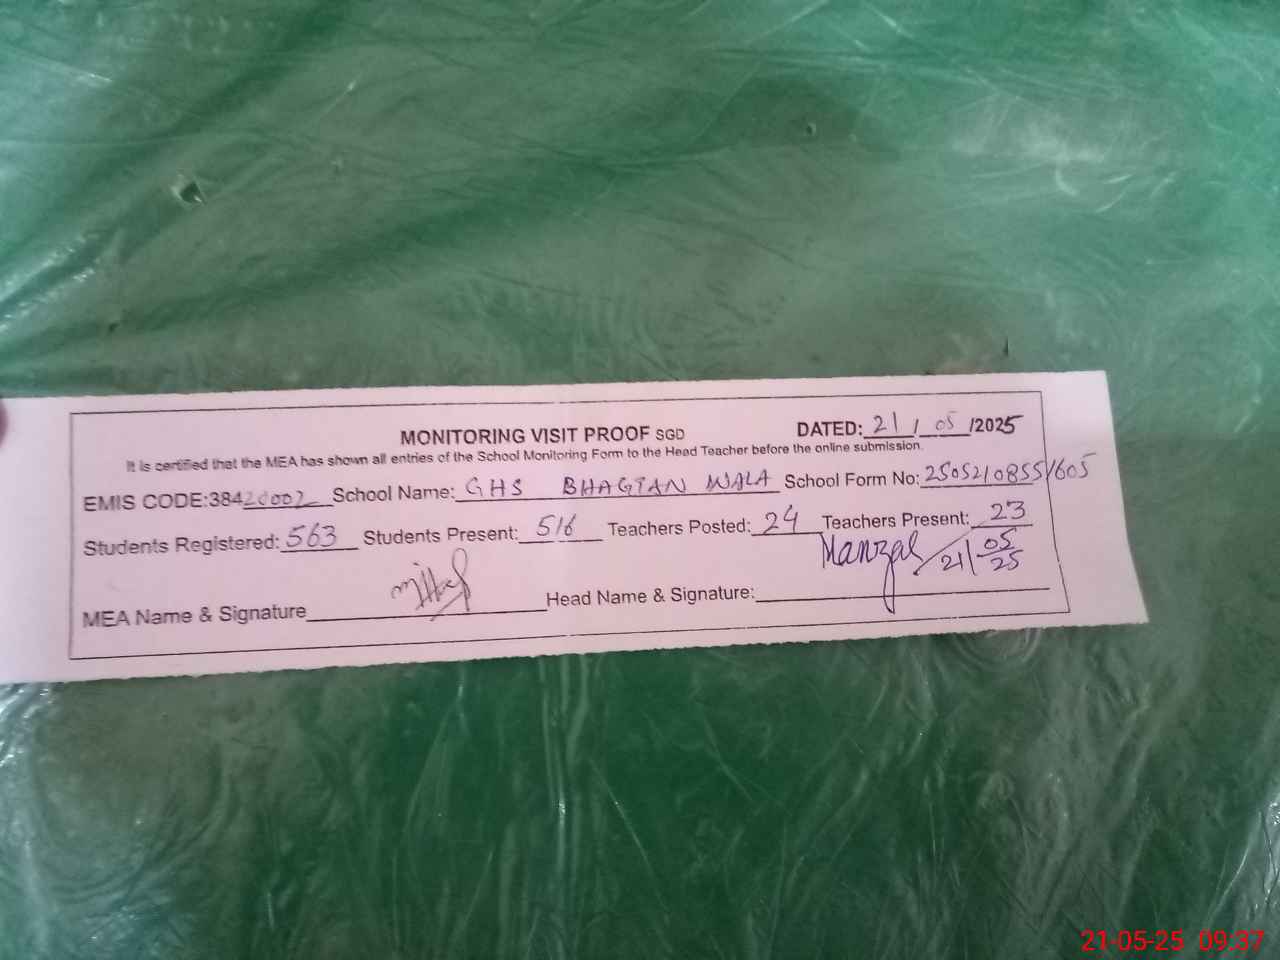 MONITORING VISIT PROOF SGD DATED: 21 / 05 /2025
It is certified that the MEA has shown all entries of the School Monitoring Form to the Head Teacher before the online submission.
EMIS CODE:38420002 School Name: GHS BHAGTAN WALA School Form No: 25052108551605
Students Registered: 563 Students Present: 516 Teachers Posted: 24 Teachers Present: 23
MEA Name & Signature Head Name & Signature: 21/05/25
21-05-25 09:37